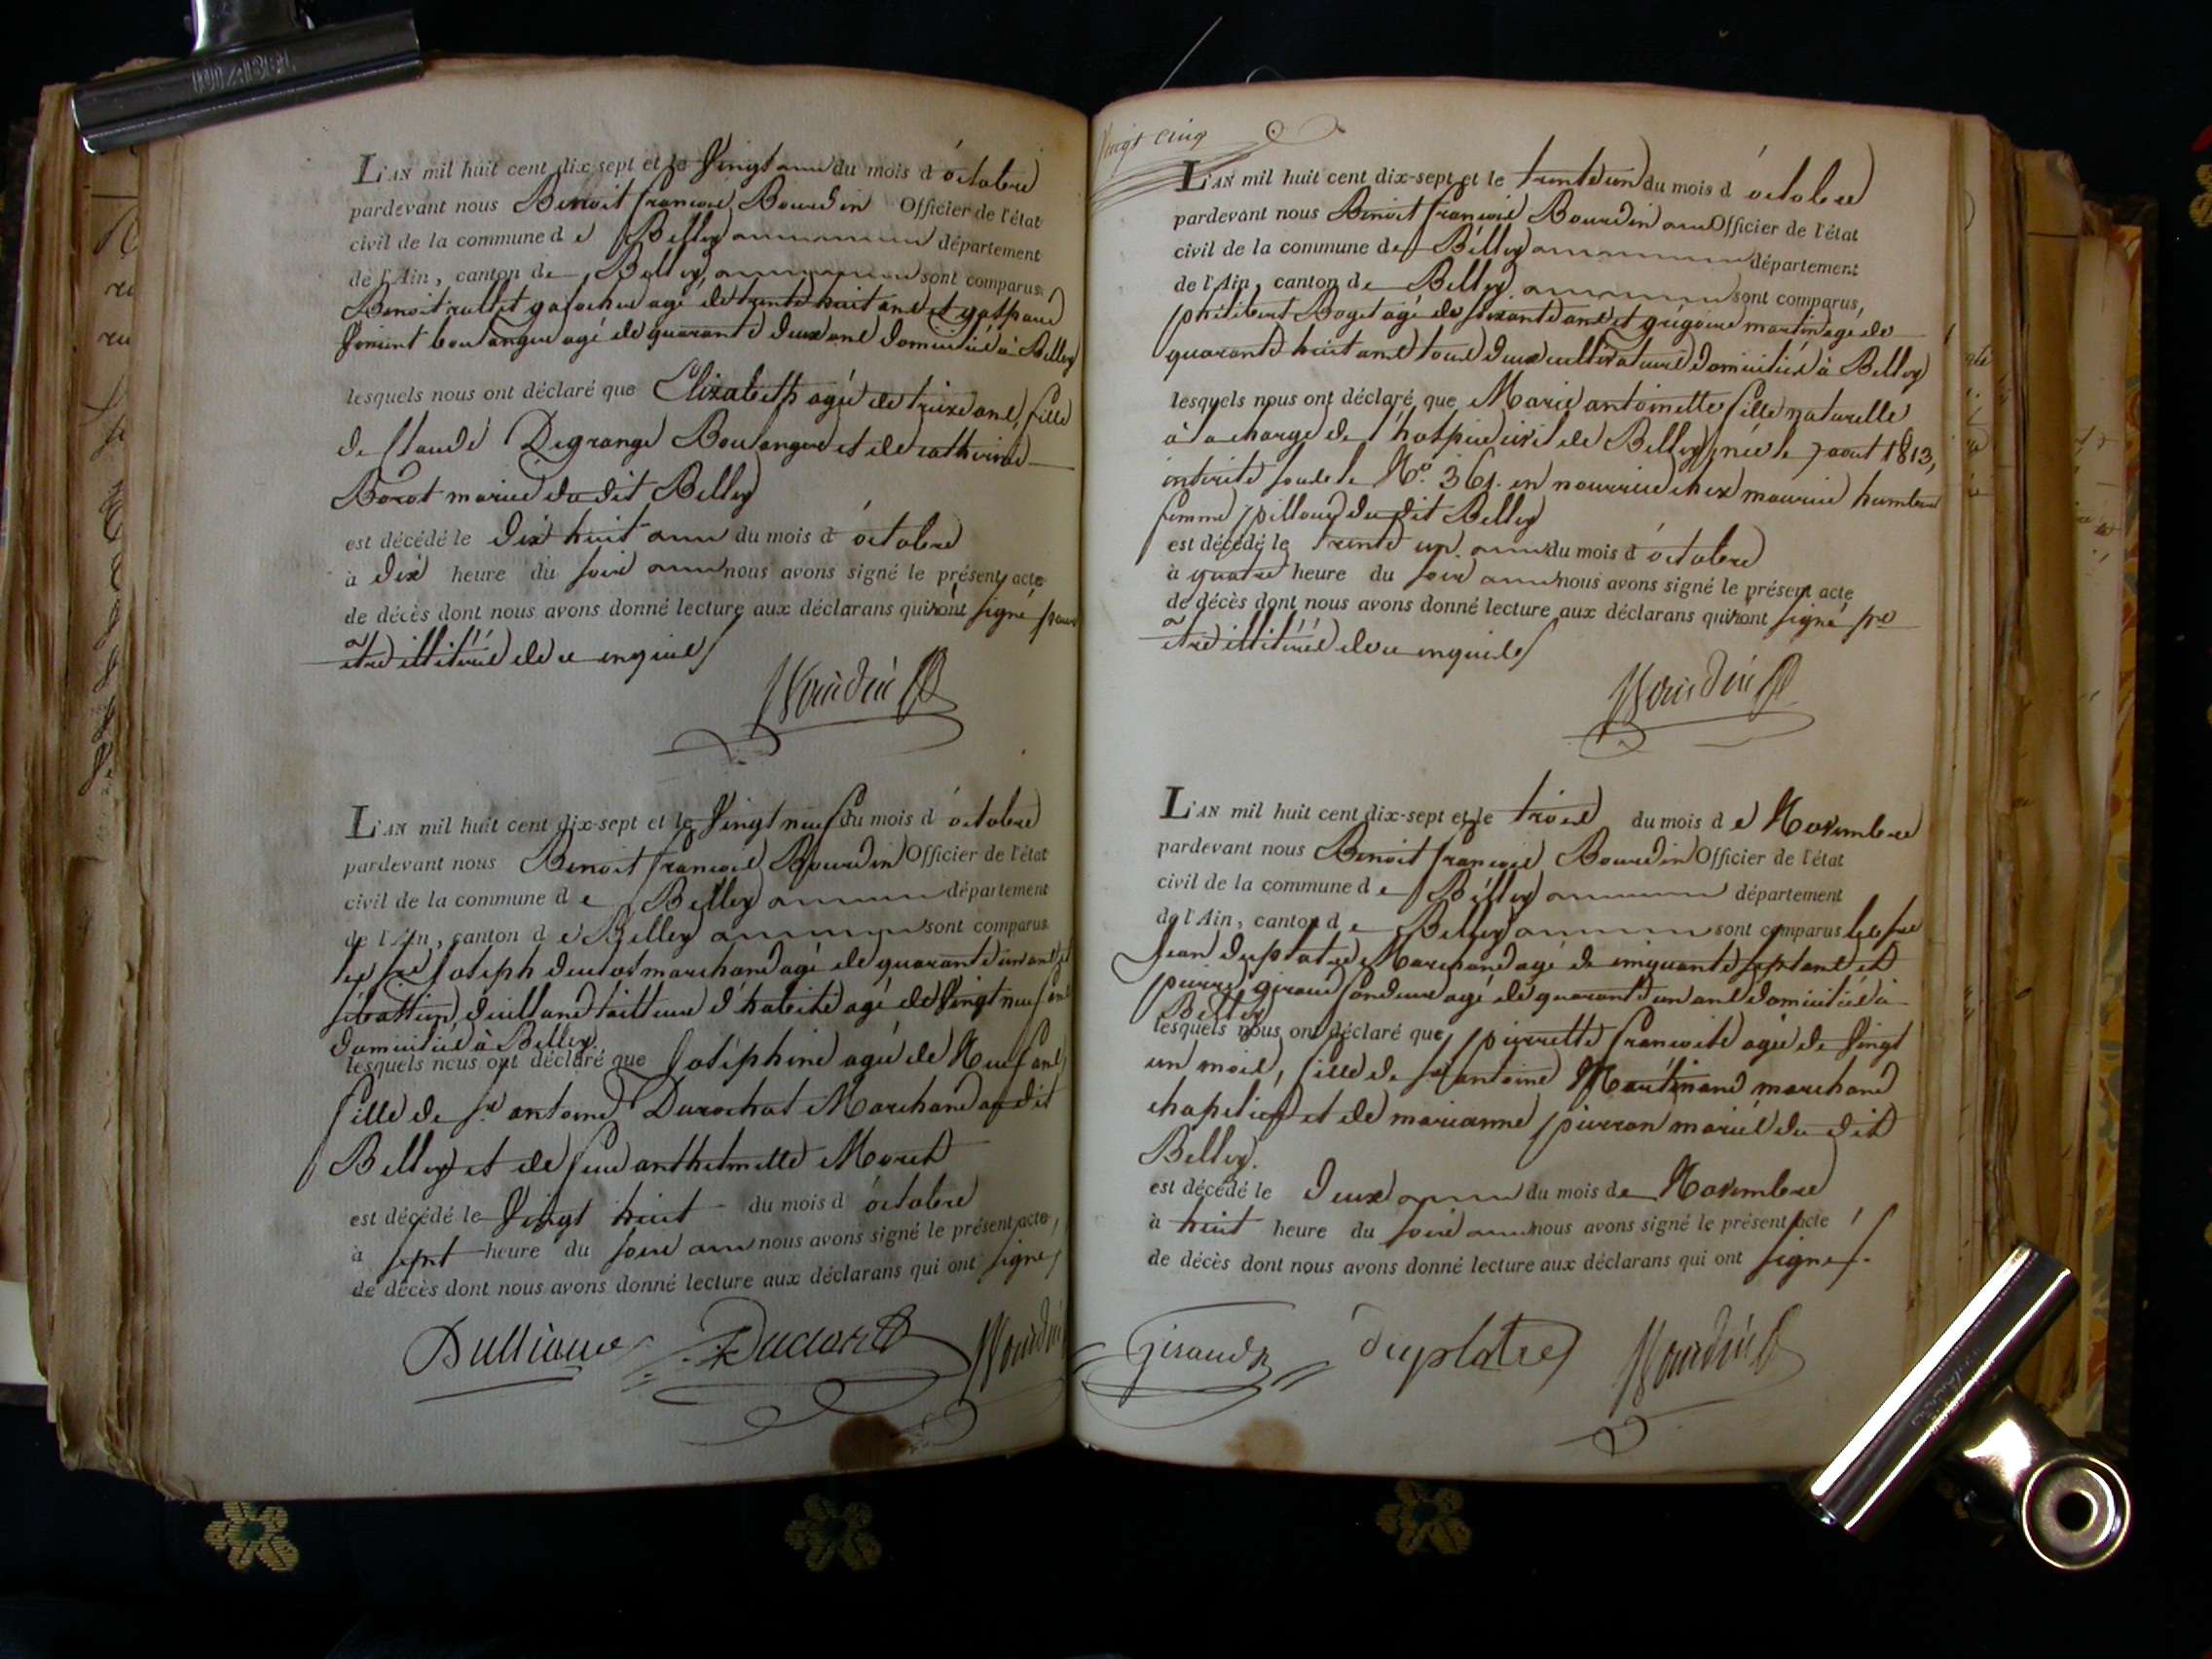 L'AN mil huit cent dix-sept et le Vingt du mois d'octobre
pardevant nous Benoit françois Bourdin Officier de l'état
civil de la commune de Belley département
de l'Ain, canton de Belley sont comparus
Benoit agé de trente huit ans et gaspard
boulanger agé de quarante deux ans domiciliés à Belley
lesquels nous ont déclaré que Elizabeth agée de treize ans, fille
de Claude Degrange Boulanger et de catherine
Borot mariés du dit Belley
est décédé le dix huit du mois d'octobre
à dix heure du soir nous avons signé le présent acte
de décès dont nous avons donné lecture aux déclarans qui n'ont signé pour
être illitérés de ce enquis
Bourdin
L'AN mil huit cent dix-sept et le Vingt neuf du mois d'octobre
pardevant nous Benoit françois Bourdin Officier de l'état
civil de la commune de Belley département
de l'Ain, canton de Belley sont comparus
les sre Joseph duclos marchand agé de quarante un ans et
sibastien tailleur d'habits agé de Vingt neuf ans
domiciliés à Belley.
lesquels nous ont déclaré que Joséphine agée de Neuf ans,
fille de sr. antoine Durochat Marchand au dit
Belley et de feue anthelmette Moret
est décédé le Vingt huit du mois d'octobre
à sept heure du soir nous avons signé le présent acte
de décès dont nous avons donné lecture aux déclarans qui ont signé
Bourdin
Vingt cinq
L'AN mil huit cent dix-sept et le trente un du mois d'octobre
pardevant nous Benoit françois Bourdin Officier de l'état
civil de la commune de Belley département
de l'Ain, canton de Belley sont comparus,
philibert Boget agé de soixante ans et grégoire martin agé de
quarante huit ans tous deux cultivateurs domiciliés à Belley
lesquels nous ont déclaré que Marie antoinette fille naturelle
à la charge de l'hospice civil de Belley, née le 7 aout 1813,
inscrite sous le No. 361. en nourrice chez maurice humbert
femme pilloud du dit Belley
est décédé le trente un du mois d'octobre
à quatre heure du soir nous avons signé le présent acte
de décès dont nous avons donné lecture aux déclarans qui n'ont signé pre
être illitérés de ce enquis
Bourdin
L'AN mil huit cent dix-sept et le trois du mois de Novembre
pardevant nous Benoit françois Bourdin Officier de l'état
civil de la commune de Belley département
de l'Ain, canton de Belley sont comparus les sre
Jean duplatre Marchand agé de cinquante sept ans et
pierre giraud fondeur agé de quarante un ans domiciliés à
Belley
lesquels nous ont déclaré que pierrette francoise agée de Vingt
un mois, fille de sr antoine Martinand marchand
chapelier et de marianne pierron mariés du dit
Belley.
est décédé le deux du mois de Novembre
à huit heure du soir nous avons signé le présent acte
de décès dont nous avons donné lecture aux déclarans qui ont signé.
Giraud duplatre Bourdin